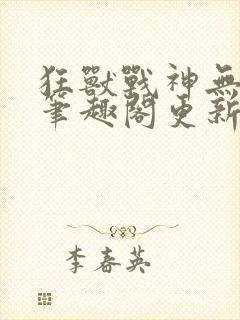 狂獸戰神無
筆趣閣更新
李春英